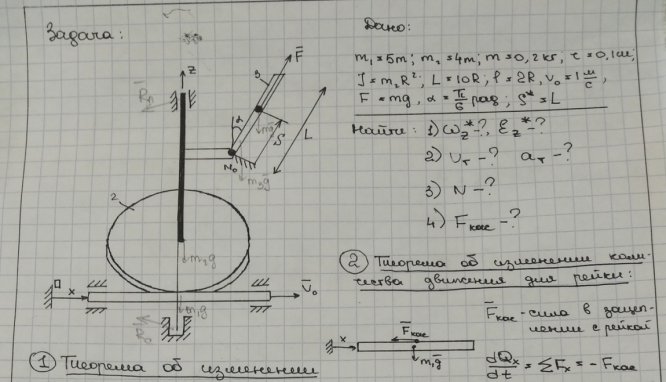 Задача:
Дано:
m₁=5m; m₂=4m; m=0,2кг, τ=0,1м;
J=m₂R²; L=10R; ρ=2R, v₀=1 м/с,
F=mg, α=π/6 рад; S*=L
Найти: 1) ω_z*-?, ε_z*-?
2) v_τ-? a_τ-?
3) N-?
4) Fкас-?
z
R̄л
F̄
3
α
mḡ
S
L
N₀
m₃ḡ
2
m₂ḡ
x
V̄₀
m₁ḡ
② Теорема об изменении коли-
чества движения для рейки:
F̄кас - сила в зацеп-
лении с рейкой
x
F̄кас
m₁ḡ
dQx/dt = ΣFx = -Fкас
① Теорема об изменении